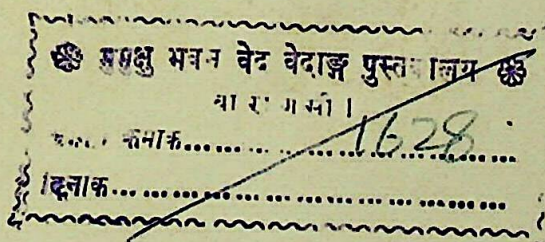 मुमुक्षु भवन वेद वेदाङ्ग पुस्तकालय
वाराणसी ।
क्रमांक........ 1628
दिनांक........